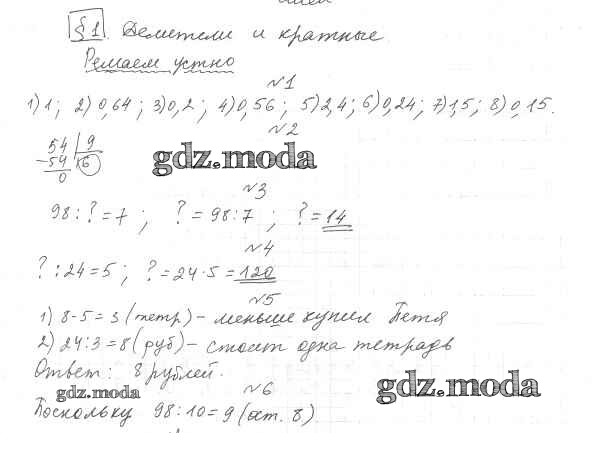 § 1. Делители и кратные
Решаем устно
№1
1) 1; 2) 0,64; 3) 0,2; 4) 0,56; 5) 2,4; 6) 0,24; 7) 1,5; 8) 0,15.
№2
54 | 9
-54 | 6
0
gdz.moda
№3
98 : ? = 7; ? = 98 : 7; ? = 14
№4
? : 24 = 5; ? = 24 · 5 = 120
№5
1) 8-5=3 (тетр) - меньше купил Петя
2) 24:3=8 (руб) - стоит одна тетрадь
Ответ: 8 рублей.
gdz.moda
gdz.moda
№6
Поскольку 98:10=9 (ост. 8)